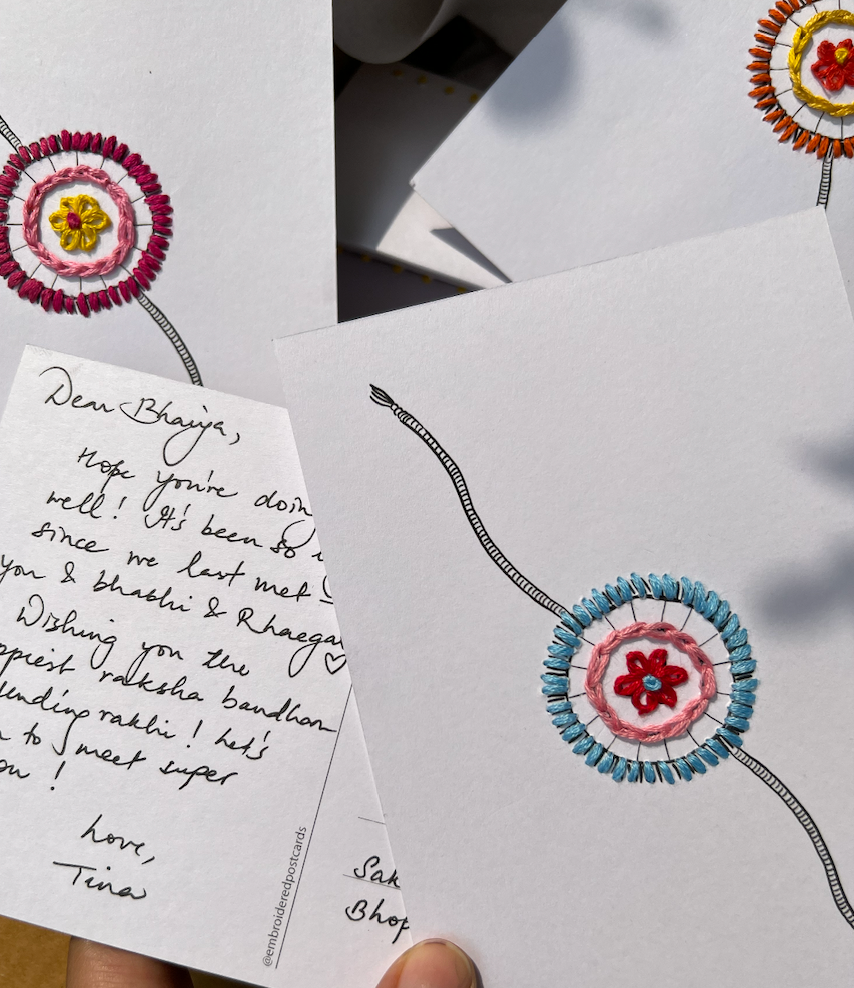 Dear Bhaiya,
Hope you're doin
well! It's been so
since we last met
you & bhabhi & Rhaega
Wishing you the
ppiest raksha bandhan
ending rakhi! Let's
to meet super
on!
Love,
Tina
@embroideredpostcards
Sak
Bhop